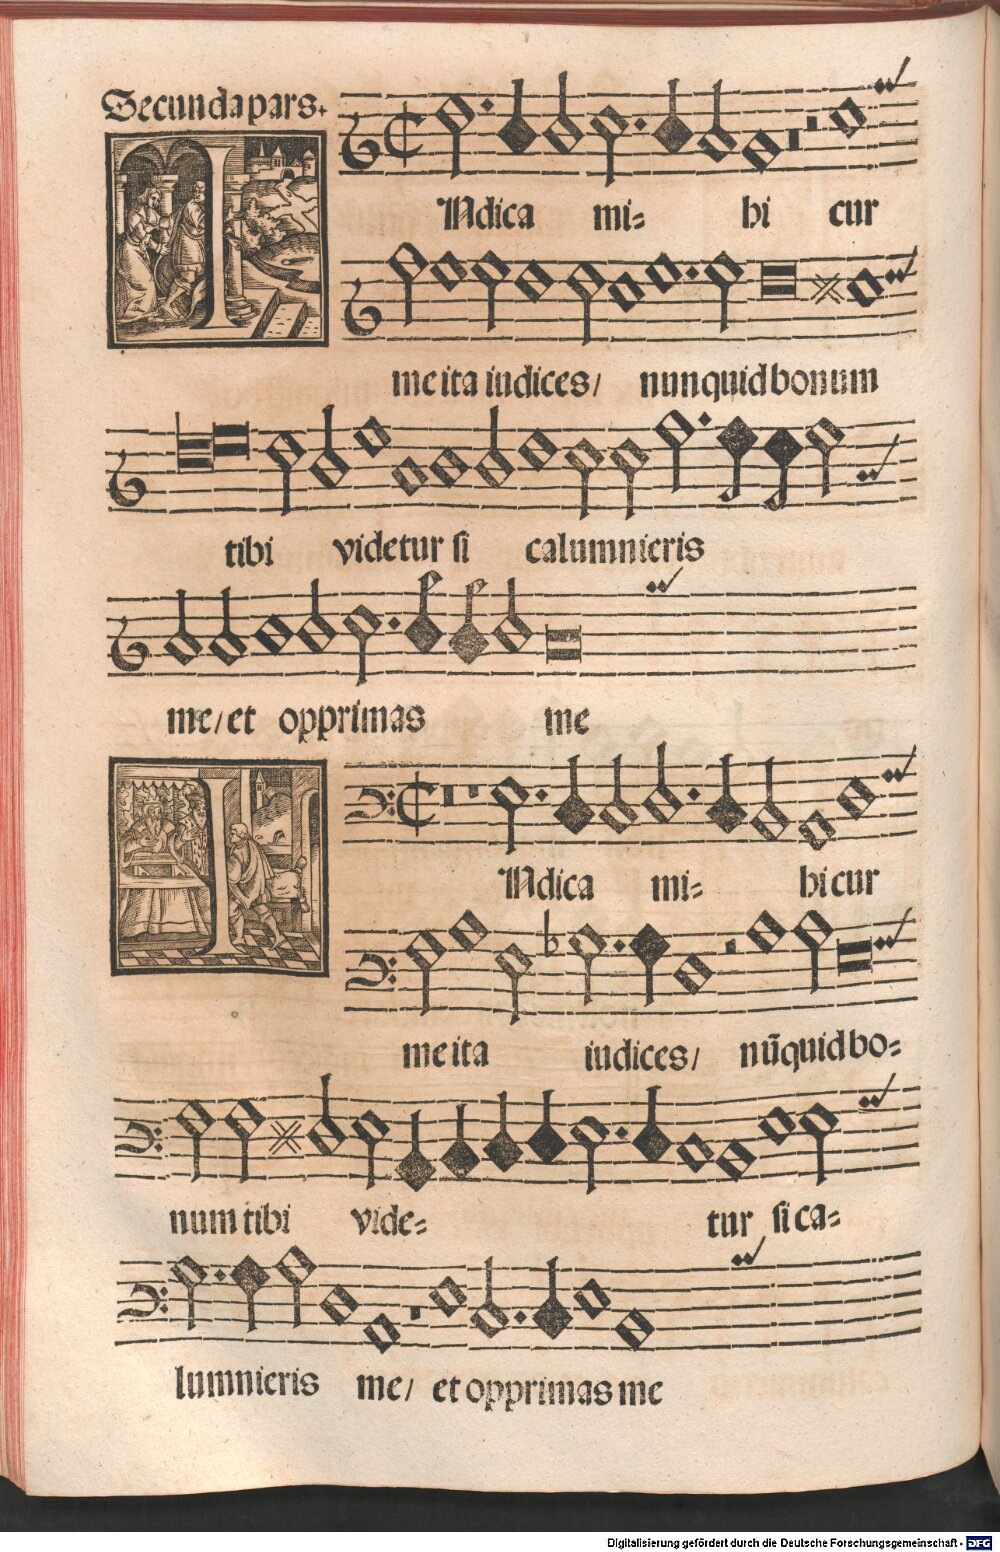 Secunda pars.
INdica mi= hi cur
me ita iudices/ nunquid bonum
tibi videtur si calumnieris
me/ et opprimas me
INdica mi= hi cur
me ita iudices/ nũquid bo=
num tibi vide= tur si ca=
lumnieris me/ et opprimas me
Digitalisierung gefördert durch die Deutsche Forschungsgemeinschaft - DFG